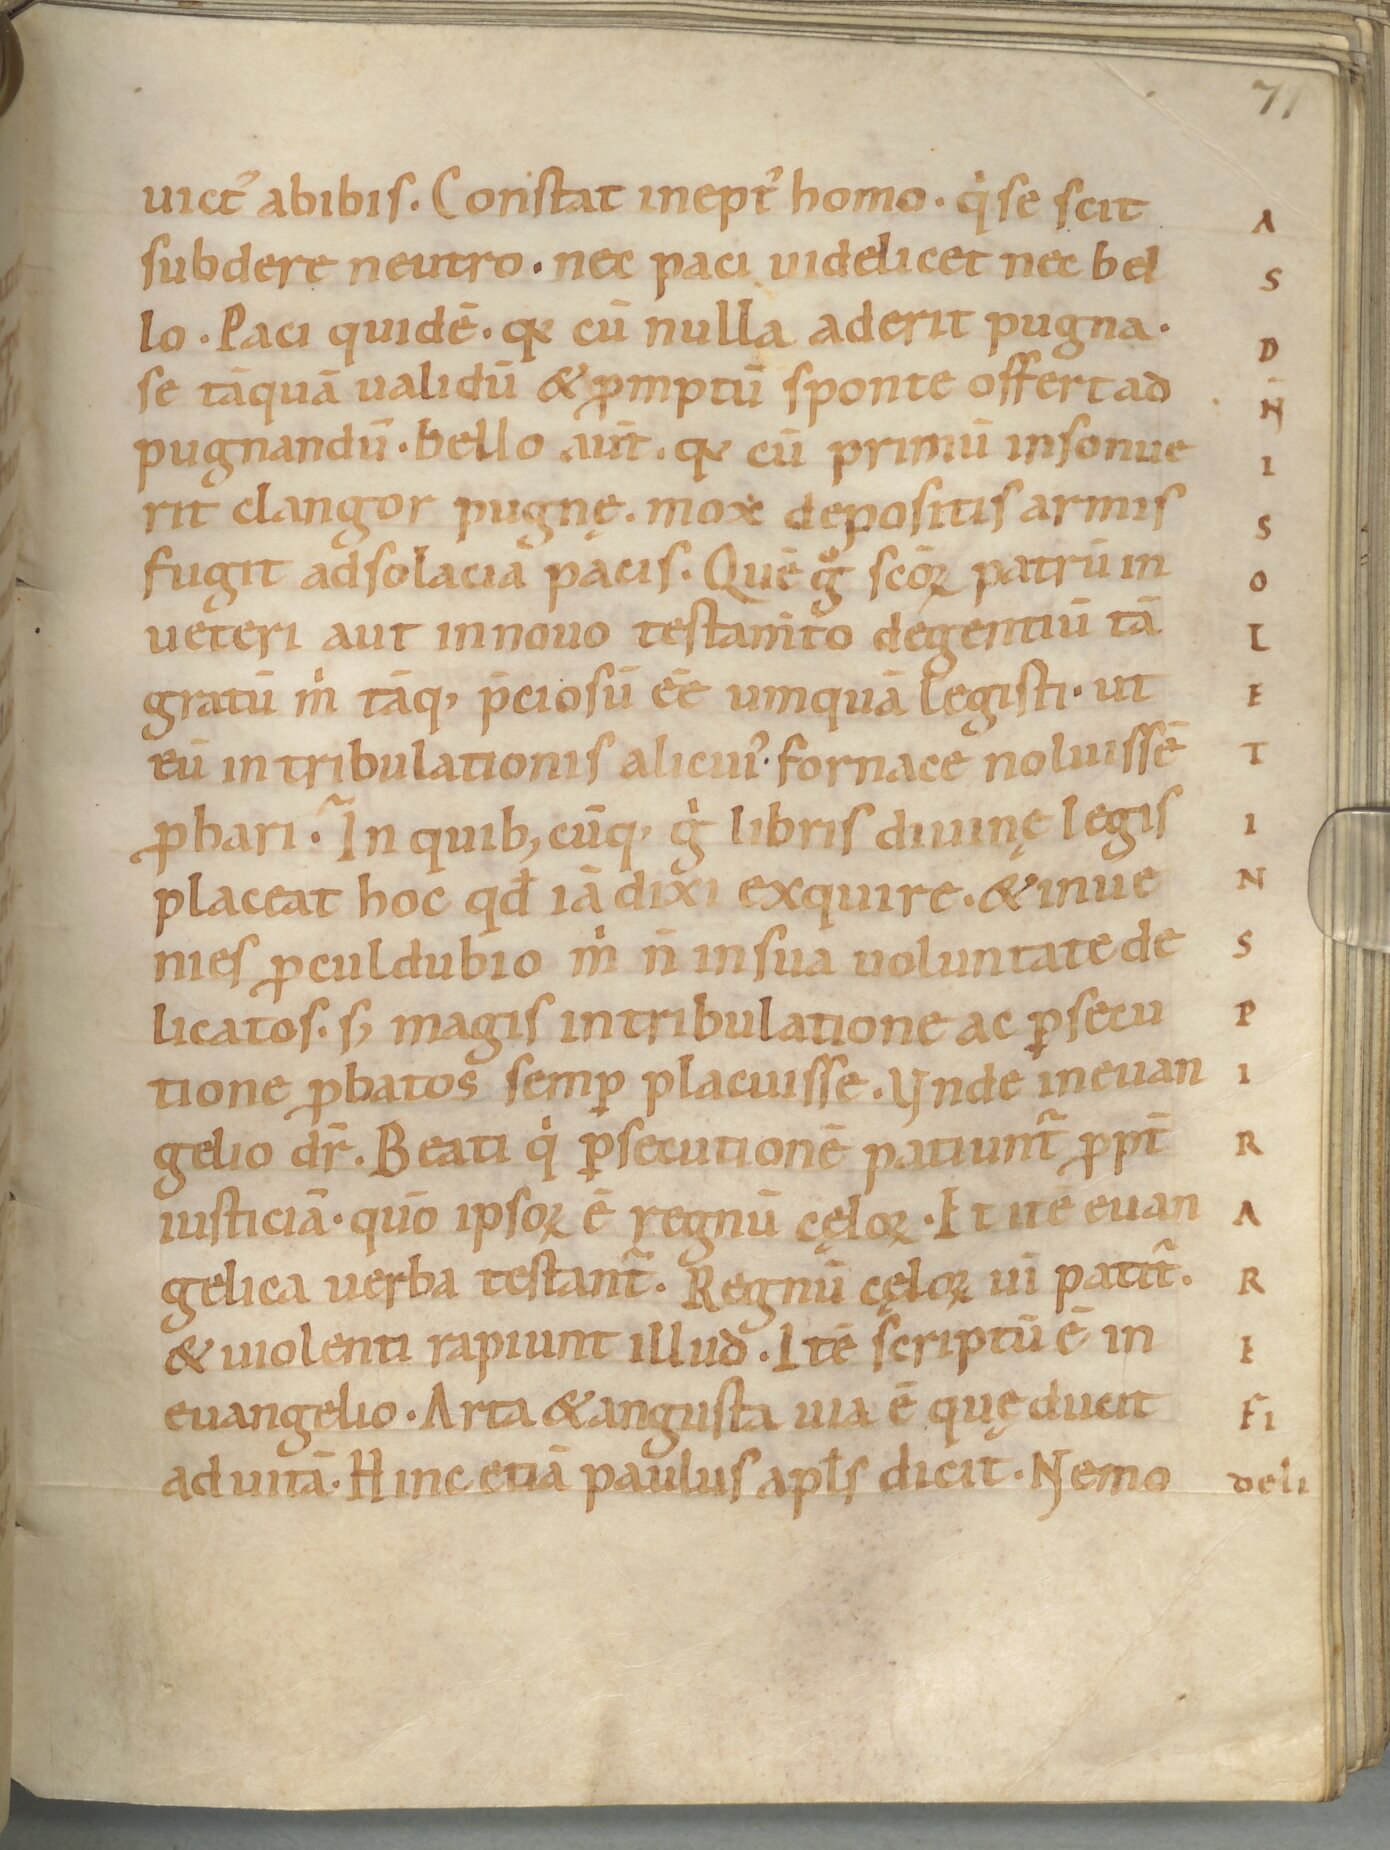 71
uict᾽ abibis. Constat inept᾽ homo. q̇ se scit
subdere neutro. nec paci uidelicet nec bel
lo. Paci quidē. qꝛ cū nulla aderit pugna.
se tāquā ualidū & ꝓmptū sponte offert ad
pugnandū. bello aūt. qꝛ cū primū insonue
rit clangor pugnę. mox depositis armis
fugit ad solacia pacis. Quē g̊ scōꝝ patrū in
ueteri aut in nouo testam̄to degentiū tā
gratū ṁ tāq, p̄ciosū ēe umquā legisti. ut
eū in tribulationis alicui᾽ fornace noluissē
ꝓbari. In quib, cūq, ġ libris diuinę legis
placeat hoc qđ iā dixi exquire. & inue
nies ꝓculdubio ṁ n̄ in sua uoluntate de
licatos. s, magis in tribulatione ac ꝑsecu
tione ꝓbatos semꝑ placuisse. Vnde in euan
gelio dr̄. Beati q̇ ꝑsecutionē patiunt̄ ꝓpt̄
iusticiā. quō ipsoꝝ ē regnū cęloꝝ. Et itē euan
gelica uerba testant̄. Regnū cęloꝝ uī patit̄.
& uiolenti rapiunt illud. Itē scriptū ē in
euangelio. Arta & angusta uia ē quę ducit
ad uitā. Hinc etiā paulus apłs dicit. Nemo
A
S
D
N̄
I
S
O
L
E
T
I
N
S
P
I
R
A
R
E
FI
deli